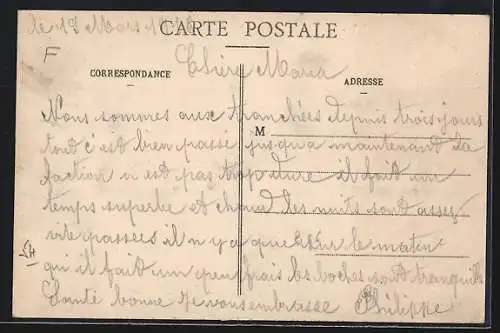 le 18 Mars
CARTE POSTALE
F
Chère Maria
CORRESPONDANCE
ADRESSE
M
Nous sommes aux tranchées depuis trois jours
tout c'est bien passé jusqu'a maintenant la
faction n est pas trop dure il fait un
temps superbe et chaud les nuits sont assez
vite passées il n'y a que sur le matin
qu'il fait un peu frais les boches sont tranquills
Santé bonne Je vous embrasse Philippe